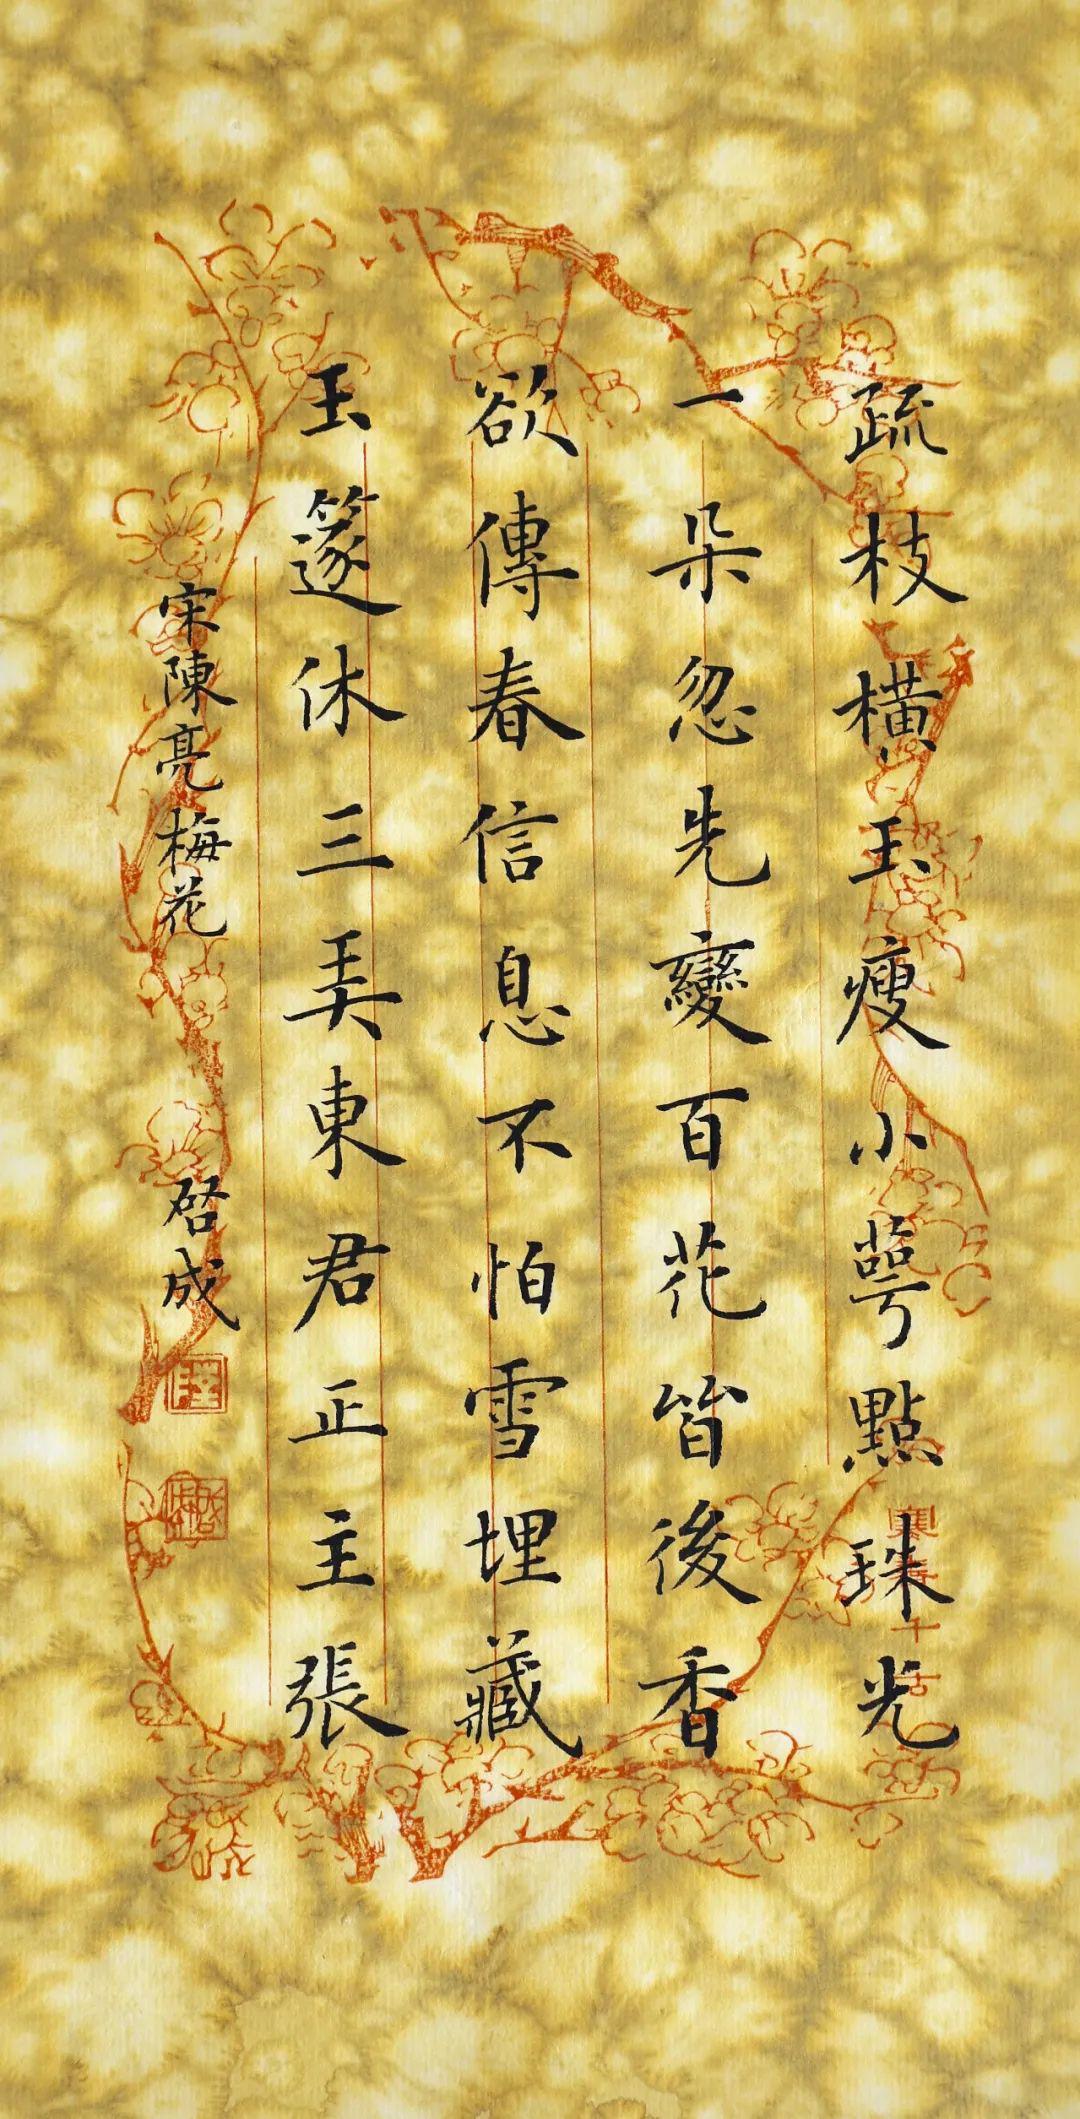 疏枝橫玉瘦小萼點珠光
一朵忽先變百花皆後香
欲傳春信息不怕雪埋藏
玉篴休三弄東君正主張
宋陳亮梅花 启成